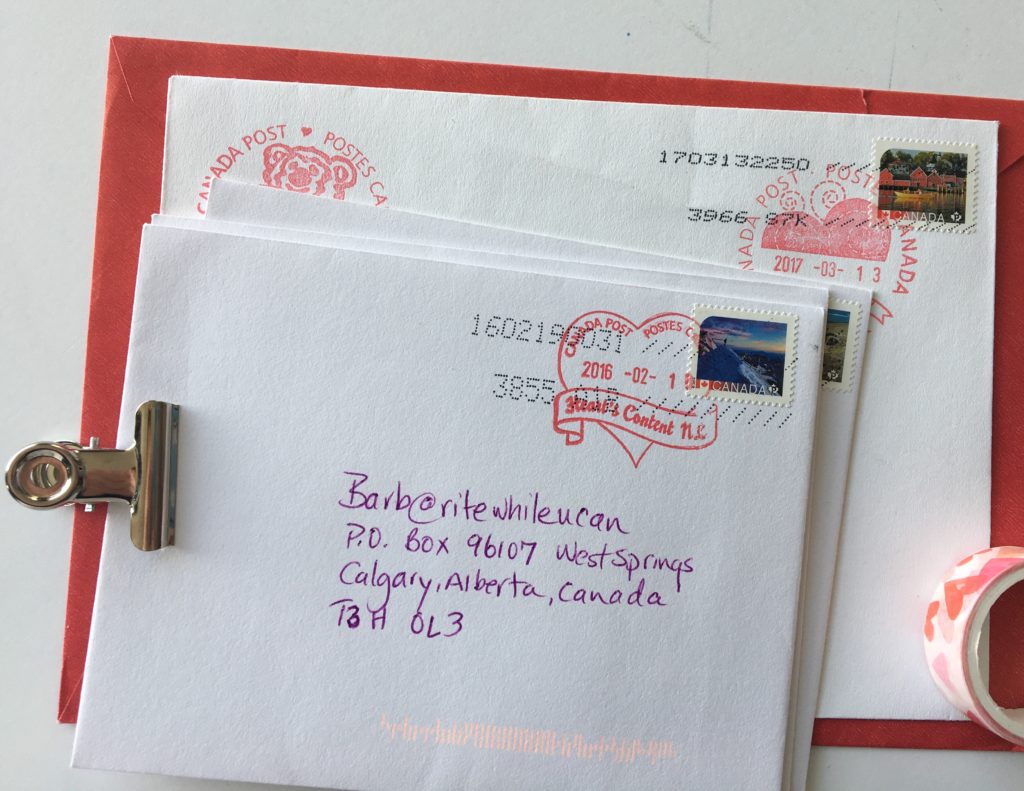 CANADA POST ♥ POSTES CA
1703132250
3966 97K
POST . POSTE
NADA
ANADA
2017 -03- 13
CANADA P
1602190031
CANADA POST POSTES C
2016 -02- 1
3855
CANADA P
Heart's Content NL
Barb@ritewhileucan
P.O. Box 96107 West Springs
Calgary, Alberta, Canada
T3H 0L3